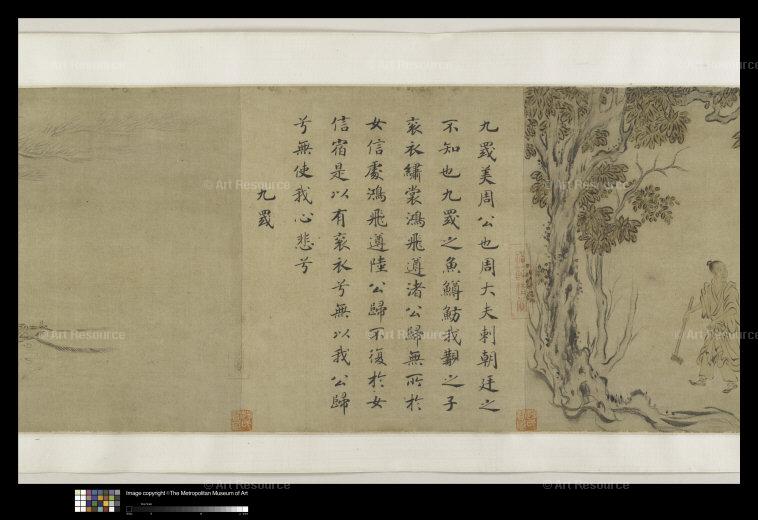 九罭美周公也周大夫刺朝廷之
不知也九罭之魚鱒魴我覯之子
袞衣繡裳鴻飛遵渚公歸無所於
女信處鴻飛遵陸公歸不復於女
信宿是以有袞衣兮無以我公歸
兮無使我心悲兮
九罭
Image copyright ©The Metropolitan Museum of Art
© Art Resource
© Art Resource
© Art Resource
© Art Resource
© Art Resource
© Art Resource
© Art Resource
© Art Resource
© Art Resource
© Art Resource
© Art Resource
© Art Resource